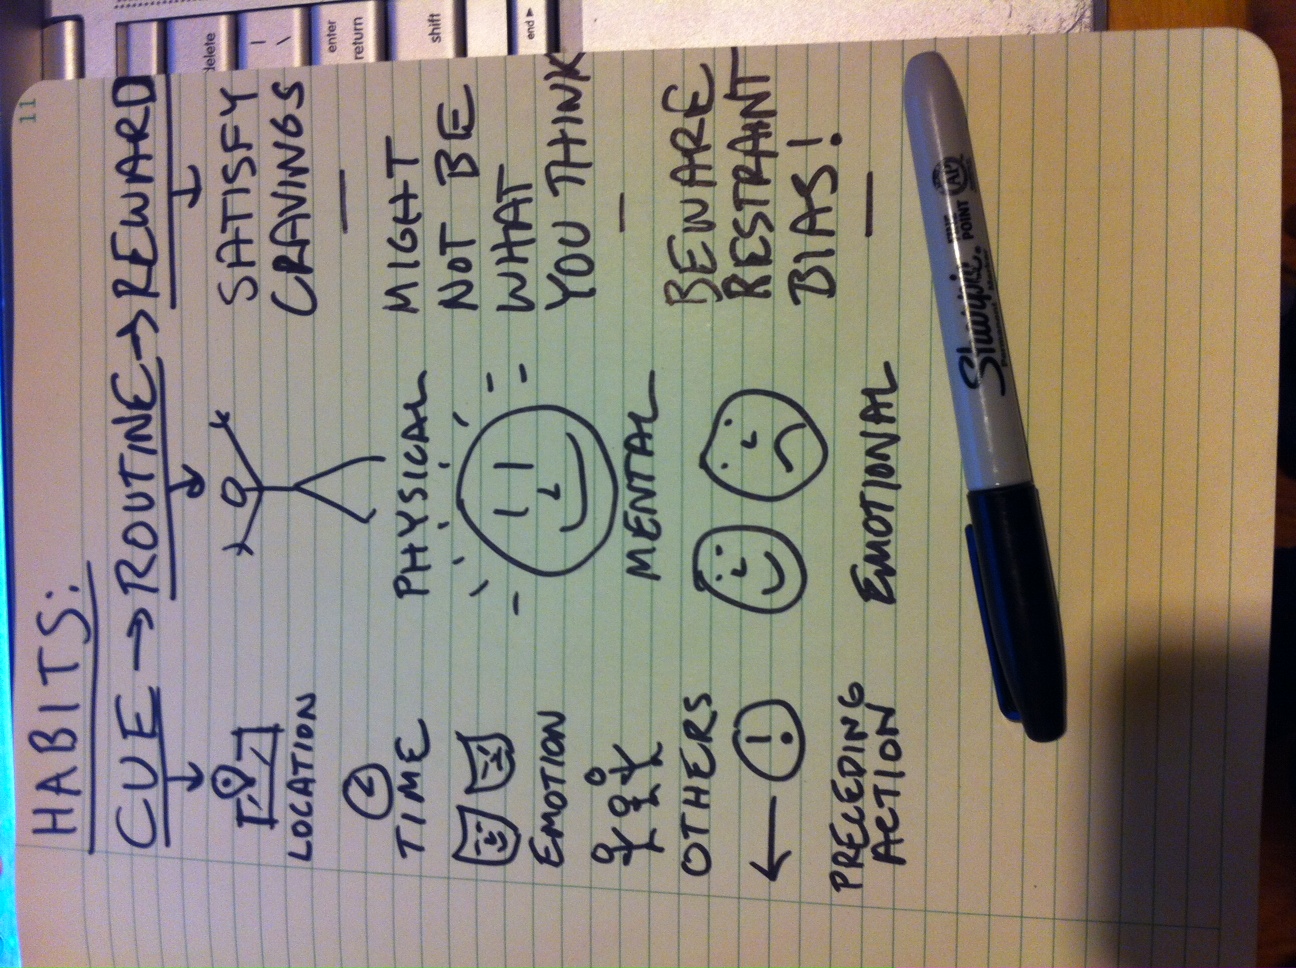 11
HABITS:
CUE → ROUTINE → REWARD
LOCATION
TIME
EMOTION
OTHERS
PRECEDING
ACTION
PHYSICAL
MENTAL
EMOTIONAL
SATISFY
CRAVINGS
—
MIGHT
NOT BE
WHAT
YOU THINK
—
BEWARE
RESTRAINT
BIAS!
—
delete
| \
enter
return
shift
end ▶
Sharpie.
FINE
POINT
AP